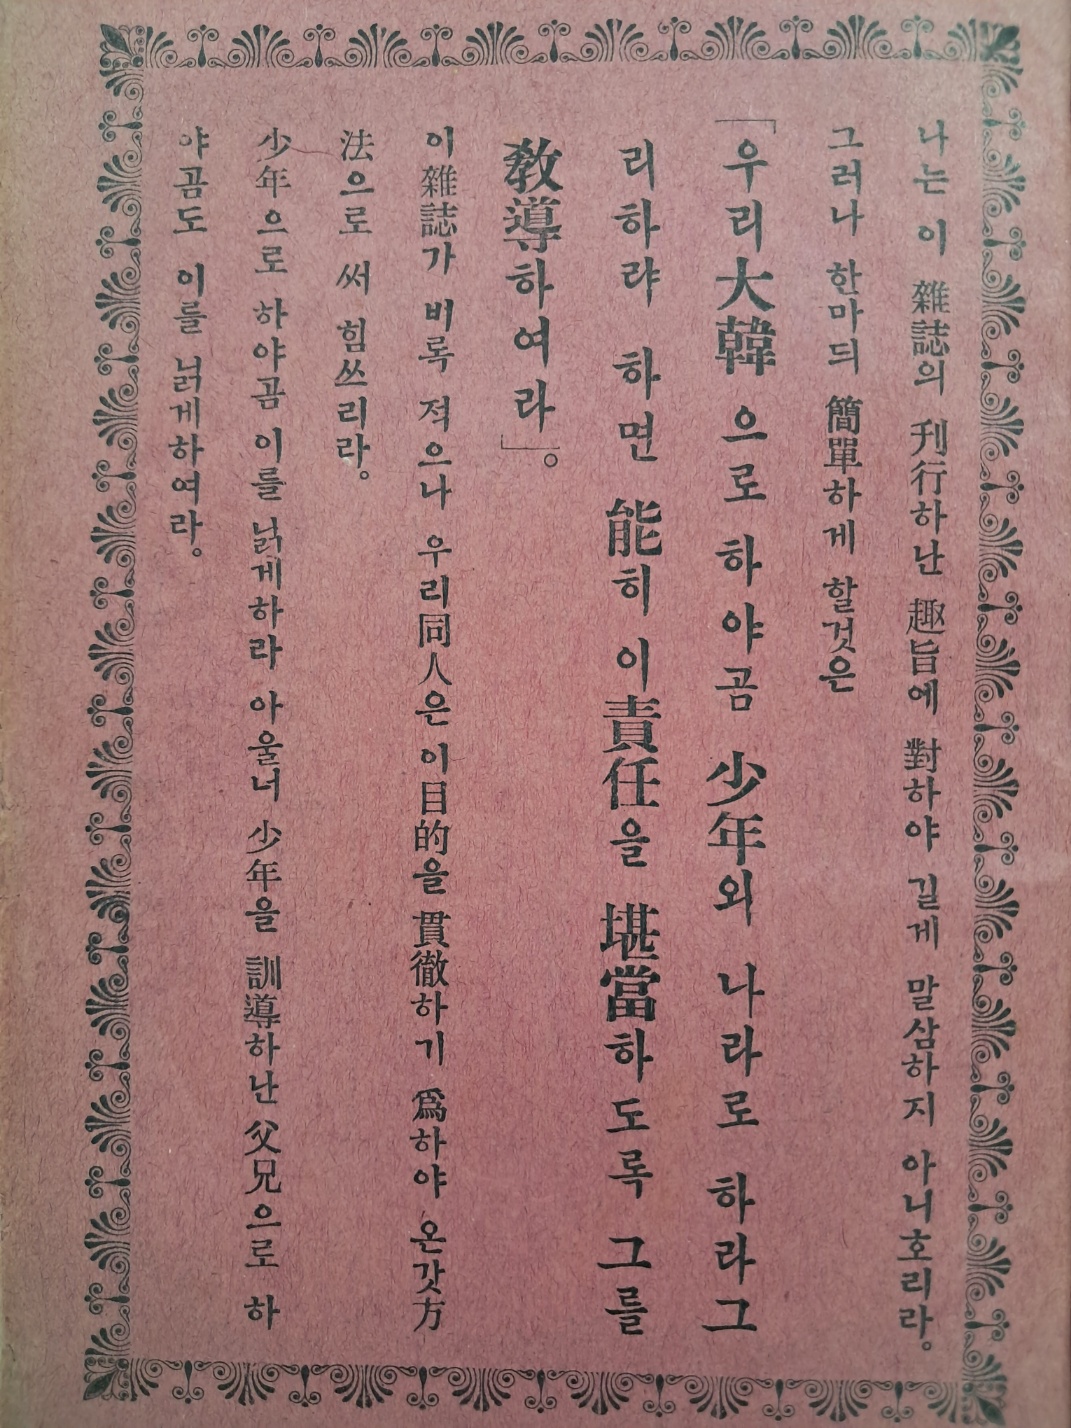 나는 이 雜誌의 刊行하난 趣旨에 對하야 길게 말삼하지 아니호리라。
그러나 한마듸 簡單하게 할것은
「우리大韓으로 하야곰 少年의 나라로 하라그
리하랴 하면 能히 이責任을 堪當하도록 그를
敎導하여라」。
이雜誌가 비록 젹으나 우리同人은 이目的을 貫徹하기 爲하야 온갓方
法으로 써 힘쓰리라。
少年으로 하야곰 이를 닑게하라 아울너 少年을 訓導하난 父兄으로 하
야곰도 이를 닑게하여라。